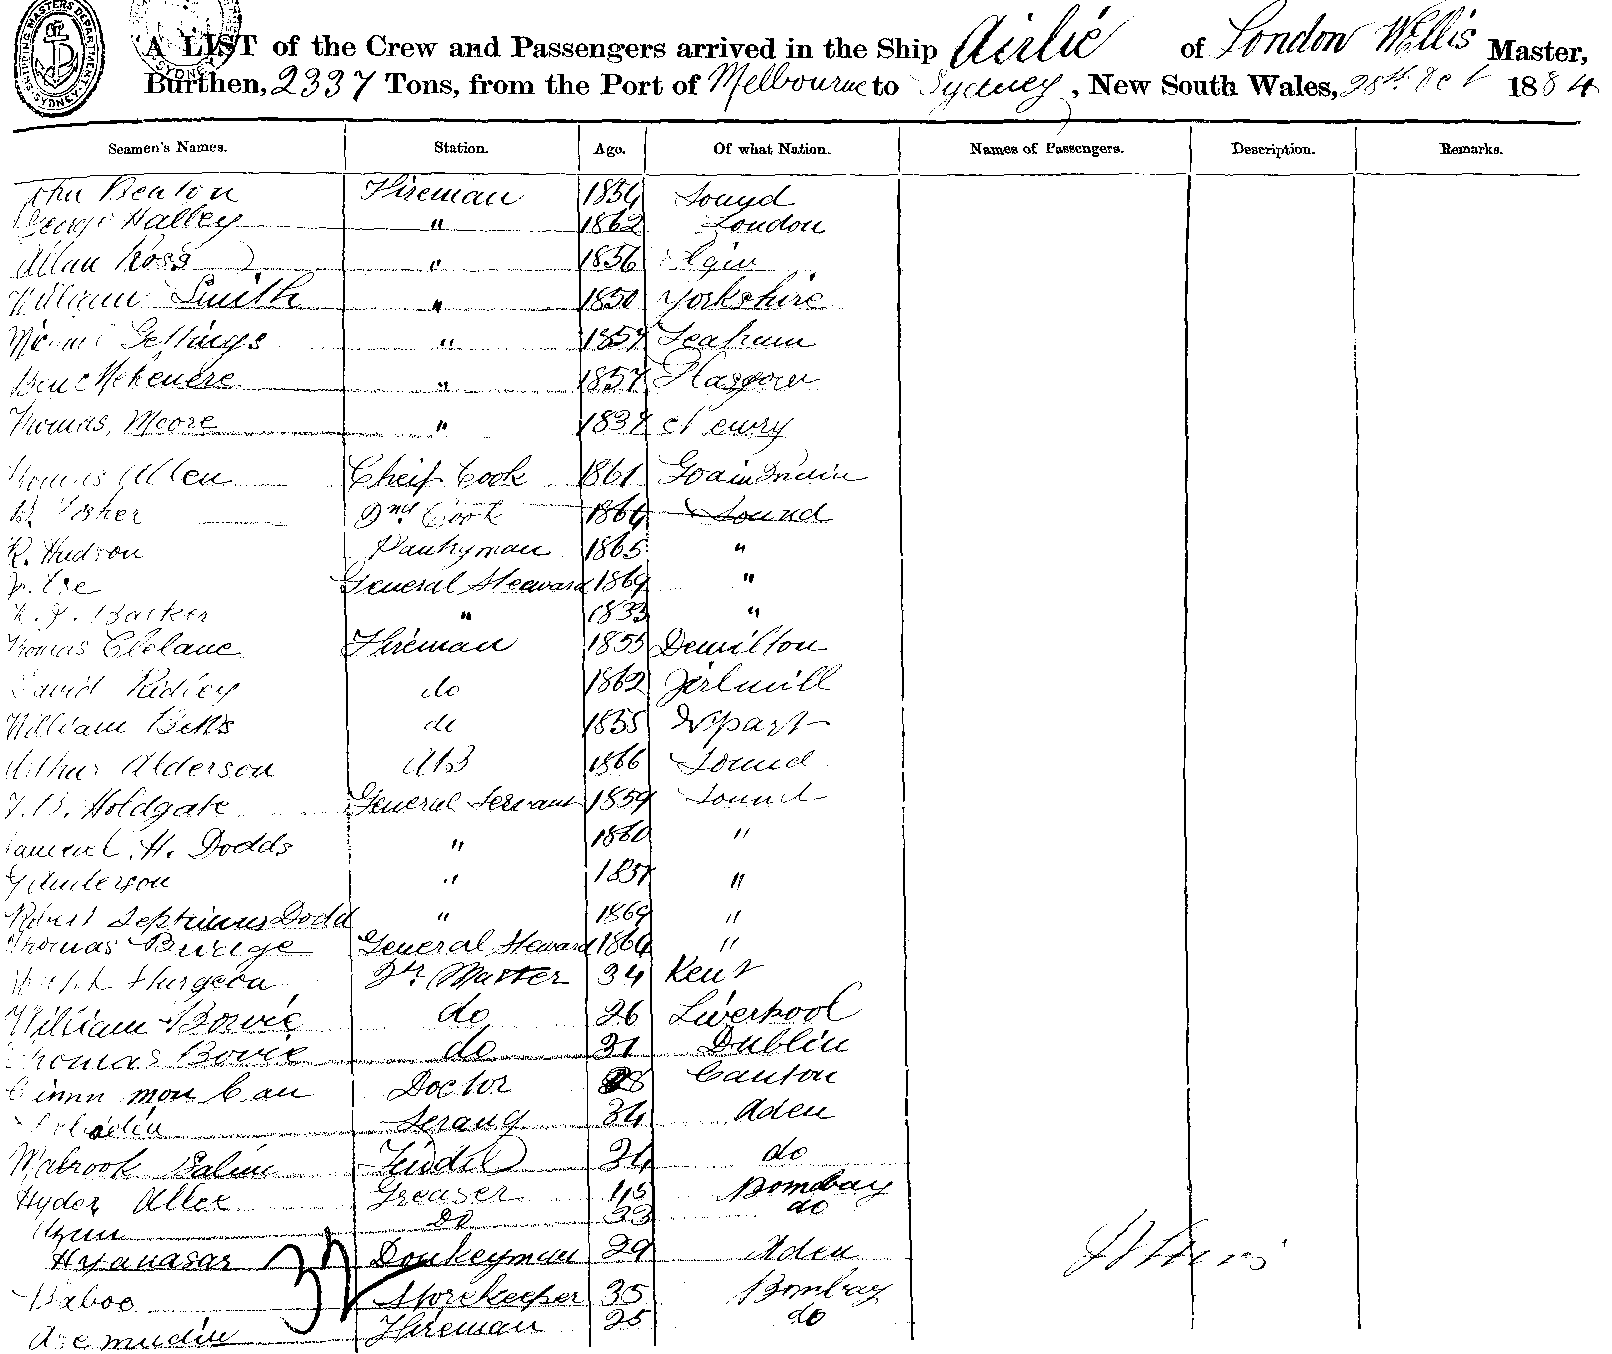 SHIPPING MASTERS DEPARTMENT SYDNEY
A LIST of the Crew and Passengers arrived in the Ship Airlie of London Wellis Master,
Burthen, 2337 Tons, from the Port of Melbourne to Sydney, New South Wales, 28th Oct 1884
Seamen's Names. Station. Age. Of what Nation. Names of Passengers. Description. Remarks.
John Benton Fireman 1854 Sound
George Halley " 1862 London
Allan Ross " 1856 Elgin
William Smith " 1850 Yorkshire
Gettings " 1857 Seaham
" 1857 Glasgow
Thomas, Moore " 1837 Newry
Thomas Allen Cheif Cook 1861
Cook Sound
R. Hudson Pantryman 1865 "
General Steeward 1869 "
Barker " 1833 "
Thomas Clelane Fireman 1855
David Ridley do 1862
William Betts do 1855
Arthur Alderson AB 1866 Sound
Holdgate General Servant 1859 Sound
Samuel. H. Dodds " 1860 "
Anderson " 1857 "
Robert Septimus Dodd " 1869 "
Thomas General Steward 1864 "
Sturgeon Qtr Master 34 Kent
William Bowie do 26 Liverpool
Thomas Bovie do 31 Dublin
mon Can Doctor 28 Canton
Serang 34 Aden
Mabrook Salim Tindal 34 do
Hyder Allee Greaser 45 Bombay
Do 33 do
Hyanasar Donkeyman 29 Aden
Baboo Storekeeper 35 Bombay
Fireman 25 do